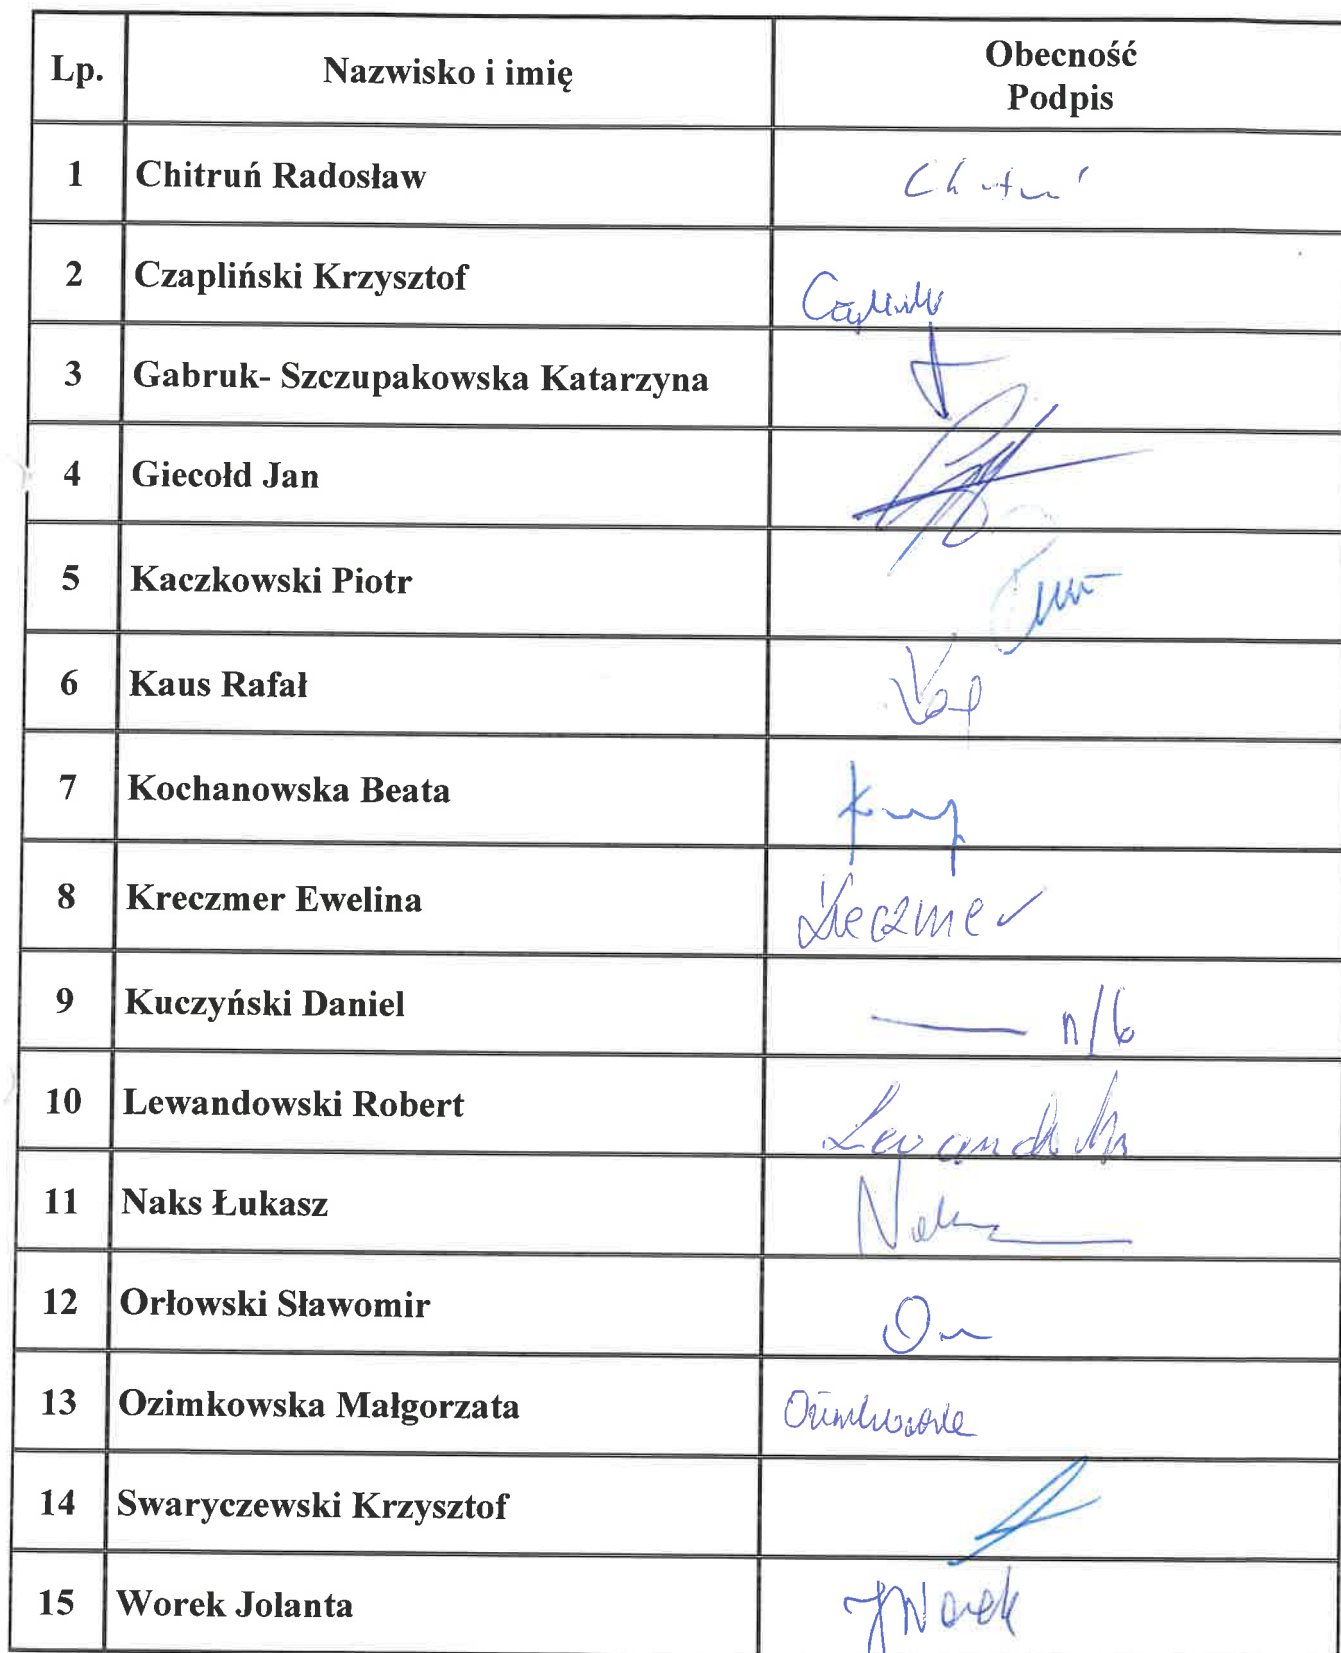 Lp. Nazwisko i imię Obecność
Podpis
1 Chitruń Radosław Chitruń
2 Czapliński Krzysztof
3 Gabruk- Szczupakowska Katarzyna
4 Giecołd Jan
5 Kaczkowski Piotr
6 Kaus Rafał
7 Kochanowska Beata
8 Kreczmer Ewelina Kreczmer
9 Kuczyński Daniel — n/b
10 Lewandowski Robert
11 Naks Łukasz
12 Orłowski Sławomir
13 Ozimkowska Małgorzata
14 Swaryczewski Krzysztof
15 Worek Jolanta JWorek